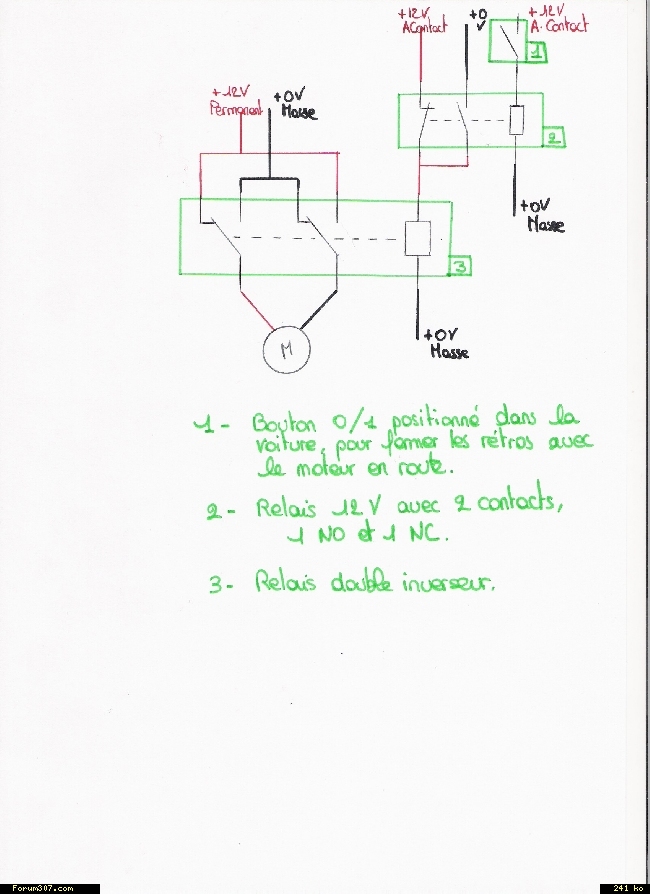 +12V
A Contact
+0
V
+12V
A. Contact
1
+12V
Permanent
+0V
Masse
2
+0V
Masse
3
M
+0V
Masse
1 - Bouton 0/1 positionné dans la
voiture, pour fermer les rétros avec
le moteur en route.
2 - Relais 12 V avec 2 contacts,
1 NO et 1 NC.
3 - Relais double inverseur.
Forum307.com
241 ko